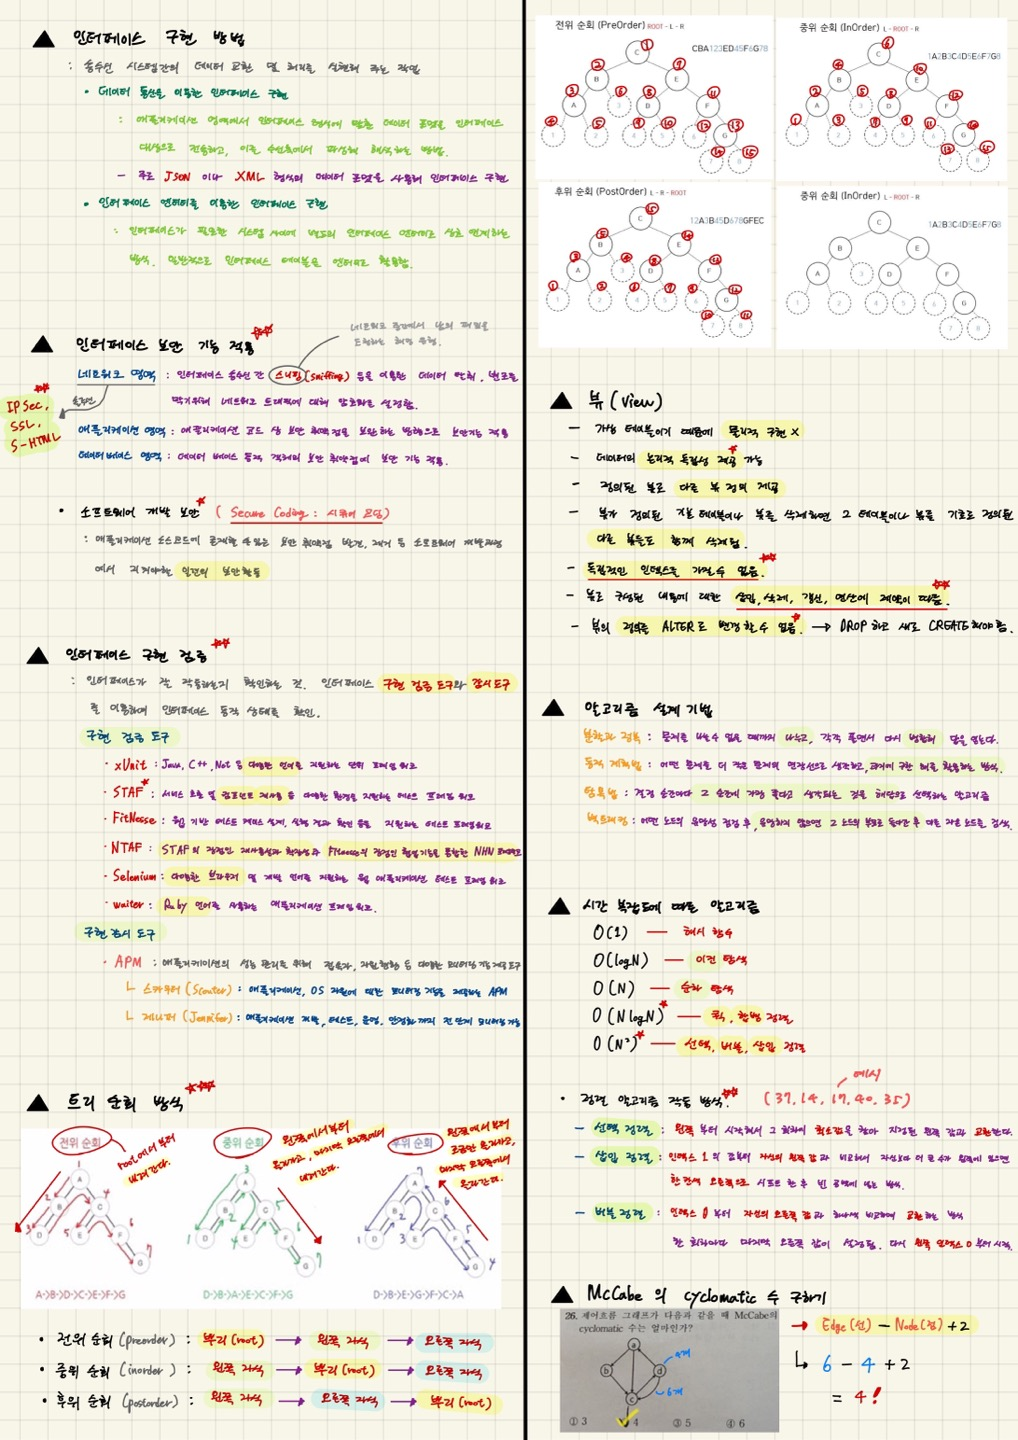 ▲ 인터페이스 구현 방법
: 송수신 시스템간의 데이터 교환 및 처리를 실현해 주는 작업
• 데이터 통신을 이용한 인터페이스 구현
: 애플리케이션 영역에서 인터페이스 형식에 맞춘 데이터 포맷을 인터페이스
대상으로 전송하고, 이를 수신측에서 파싱해 해석하는 방법.
- 주로 JSON 이나 XML 형식의 데이터 포맷을 사용해 인터페이스 구현
• 인터페이스 엔티티를 이용한 인터페이스 구현
: 인터페이스가 필요한 시스템 사이에 별도의 인터페이스 엔티티로 상호 연계하는
방식. 일반적으로 인터페이스 테이블을 엔티티로 활용함.
▲ 인터페이스 보안 기능 적용
네트워크 중간에서 남의 패킷을
도청하는 해킹 유형.
네트워크 영역 : 인터페이스 송수신 간 스니핑(sniffing) 등을 이용한 데이터 탈취, 변조를
막기위해 네트워크 트래픽에 대해 암호화를 설정함.
IPSec,
SSL,
S-HTML
애플리케이션 영역 : 애플리케이션 코드 상 보안 취약점을 보완하는 방향으로 보안기능 적용
데이터베이스 영역 : 데이터 베이스 동작 객체의 보안 취약점에 보안 기능 적용.
• 소프트웨어 개발 보안 ( Secure Coding : 시큐어 코딩)
: 애플리케이션 소스코드에 존재할 수 있는 보안 취약점 발견, 제거 등 소프트웨어 개발과정
에서 지켜야할 일련의 보안활동
▲ 인터페이스 구현 검증
: 인터페이스가 잘 작동하는지 확인하는 것. 인터페이스 구현 검증 도구와 감시 도구
를 이용하여 인터페이스 동작 상태를 확인.
구현 검증 도구
• xUnit : Java, C++, .Net 등 다양한 언어를 지원하는 단위 프레임 워크
• STAF : 서비스 호출 및 컴포넌트 재사용 등 다양한 환경을 지원하는 테스트 프레임 워크
• FitNesse : 웹 기반 테스트 케이스 설계, 실행 결과 확인 등을 지원하는 테스트 프레임워크
• NTAF : STAF의 장점인 재사용성과 확장성과 Fitnesse의 장점인 협업기능을 통합한 NHN 프레임워크
• Selenium : 다양한 브라우저 및 개발 언어를 지원하는 웹 애플리케이션 테스트 프레임 워크
• watir : Ruby 언어를 사용하는 애플리케이션 프레임 워크.
구현 감시 도구
• APM : 애플리케이션의 성능 관리를 위해 접속자, 자원현황 등 다양한 모니터링 기능 제공 도구
└ 스카우터 (Scouter) : 애플리케이션, OS 자원에 대한 모니터링 기능을 제공하는 APM
└ 제니퍼 (Jennifer) : 애플리케이션 개발, 테스트, 운영, 안정화까지 전 단계 모니터링 가능
▲ 트리 순회 방식
전위 순회
root에서 부터
내려간다.
A->B->D->C->E->F->G
중위 순회
왼쪽에서부터
D->B->A->E->C->F->G
후위 순회
왼쪽에서부터
D->B->E->G->F->C->A
• 전위 순회 (preorder) : 뿌리(root) → 왼쪽 자식 → 오른쪽 자식
• 중위 순회 (inorder) : 왼쪽 자식 → 뿌리(root) → 오른쪽 자식
• 후위 순회 (postorder) : 왼쪽 자식 → 오른쪽 자식 → 뿌리(root)
전위 순회 (PreOrder) ROOT - L - R
CBA123ED45F6G78
중위 순회 (InOrder) L - ROOT - R
1A2B3C4D5E6F7G8
후위 순회 (PostOrder) L - R - ROOT
12A3B45D678GFEC
중위 순회 (InOrder) L - ROOT - R
1A2B3C4D5E6F7G8
▲ 뷰 (View)
- 가상 테이블이기 때문에 물리적 구현 X
- 데이터의 논리적 독립성 제공 가능
- 정의된 뷰로 다른 뷰 정의 제공
- 뷰가 정의된 기본 테이블이나 뷰를 삭제하면 그 테이블이나 뷰를 기초로 정의된
다른 뷰들도 함께 삭제됨.
- 독립적인 인덱스를 가질 수 없음.
- 뷰로 구성된 내용에 대한 삽입, 삭제, 갱신, 연산에 제약이 따름.
- 뷰의 정의를 ALTER로 변경할 수 없음. → DROP 하고 새로 CREATE 해야 함.
▲ 알고리즘 설계 기법
분할과 정복 : 문제를 나눌 수 없을 때까지 나누고, 각각 풀면서 다시 병합해 답을 얻는다.
동적 계획법 : 어떤 문제를 더 작은 문제의 연장선으로 생각하고, 과거에 구한 해를 활용하는 방식.
탐욕법 : 결정 순간마다 그 순간에 가장 좋다고 생각되는 것을 해답으로 선택하는 알고리즘
백트래킹 : 어떤 노드의 유망성 점검 후, 유망하지 않으면 그 노드의 부모로 돌아간 후 다른 자손 노드를 검색.
▲ 시간 복잡도에 따른 알고리즘
O(1) — 해시 함수
O(logN) — 이진 탐색
O(N) — 순차 탐색
O(NlogN) — 퀵, 합병 정렬
O(N²) — 선택, 버블, 삽입 정렬
예시
• 정렬 알고리즘 작동 방식. (37, 14, 17, 40, 35)
- 선택 정렬 : 왼쪽 부터 시작해서 그 회차의 최소값을 찾아 지정된 왼쪽 값과 교환한다.
- 삽입 정렬 : 인덱스 1의 값부터 자신의 왼쪽 값과 비교해서 자신보다 더 큰 수가 왼쪽에 있으면
한칸씩 오른쪽으로 시프트 한 후 빈 공백에 넣는 방식.
- 버블 정렬 : 인덱스 0 부터 자신의 오른쪽 값과 하나씩 비교하며 교환하는 방식
한 회차마다 마지막 오른쪽 값이 설정됨. 다시 왼쪽 인덱스 0 부터 시작.
▲ McCabe 의 cyclomatic 수 구하기
26. 제어흐름 그래프가 다음과 같을 때 McCabe의
cyclomatic 수는 얼마인가?
a
b
d
c
4개
6개
① 3 4 ③ 5 ④ 6
→ Edge(선) - Node(점) +2
↳ 6 - 4 +2
= 4!